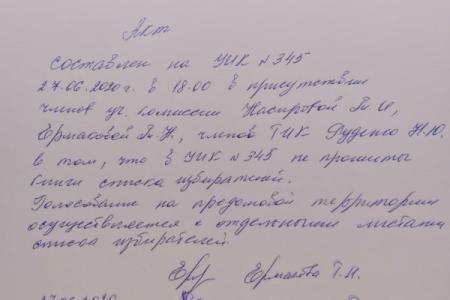 Акт
составлен на УИК №345
27.06.2020г. в 18.00 в присутствии
членов уч. комиссии Насировой Т.И,
Ермаковой Т.Н., членов ТИК Руденко Н.Ю.
в том, что в УИК №345 не прошиты
книги списка избирателей.
Голосование на придомовой территории
осуществляется с отдельными листами
списка избирателей.
Ермакова Т.Н.